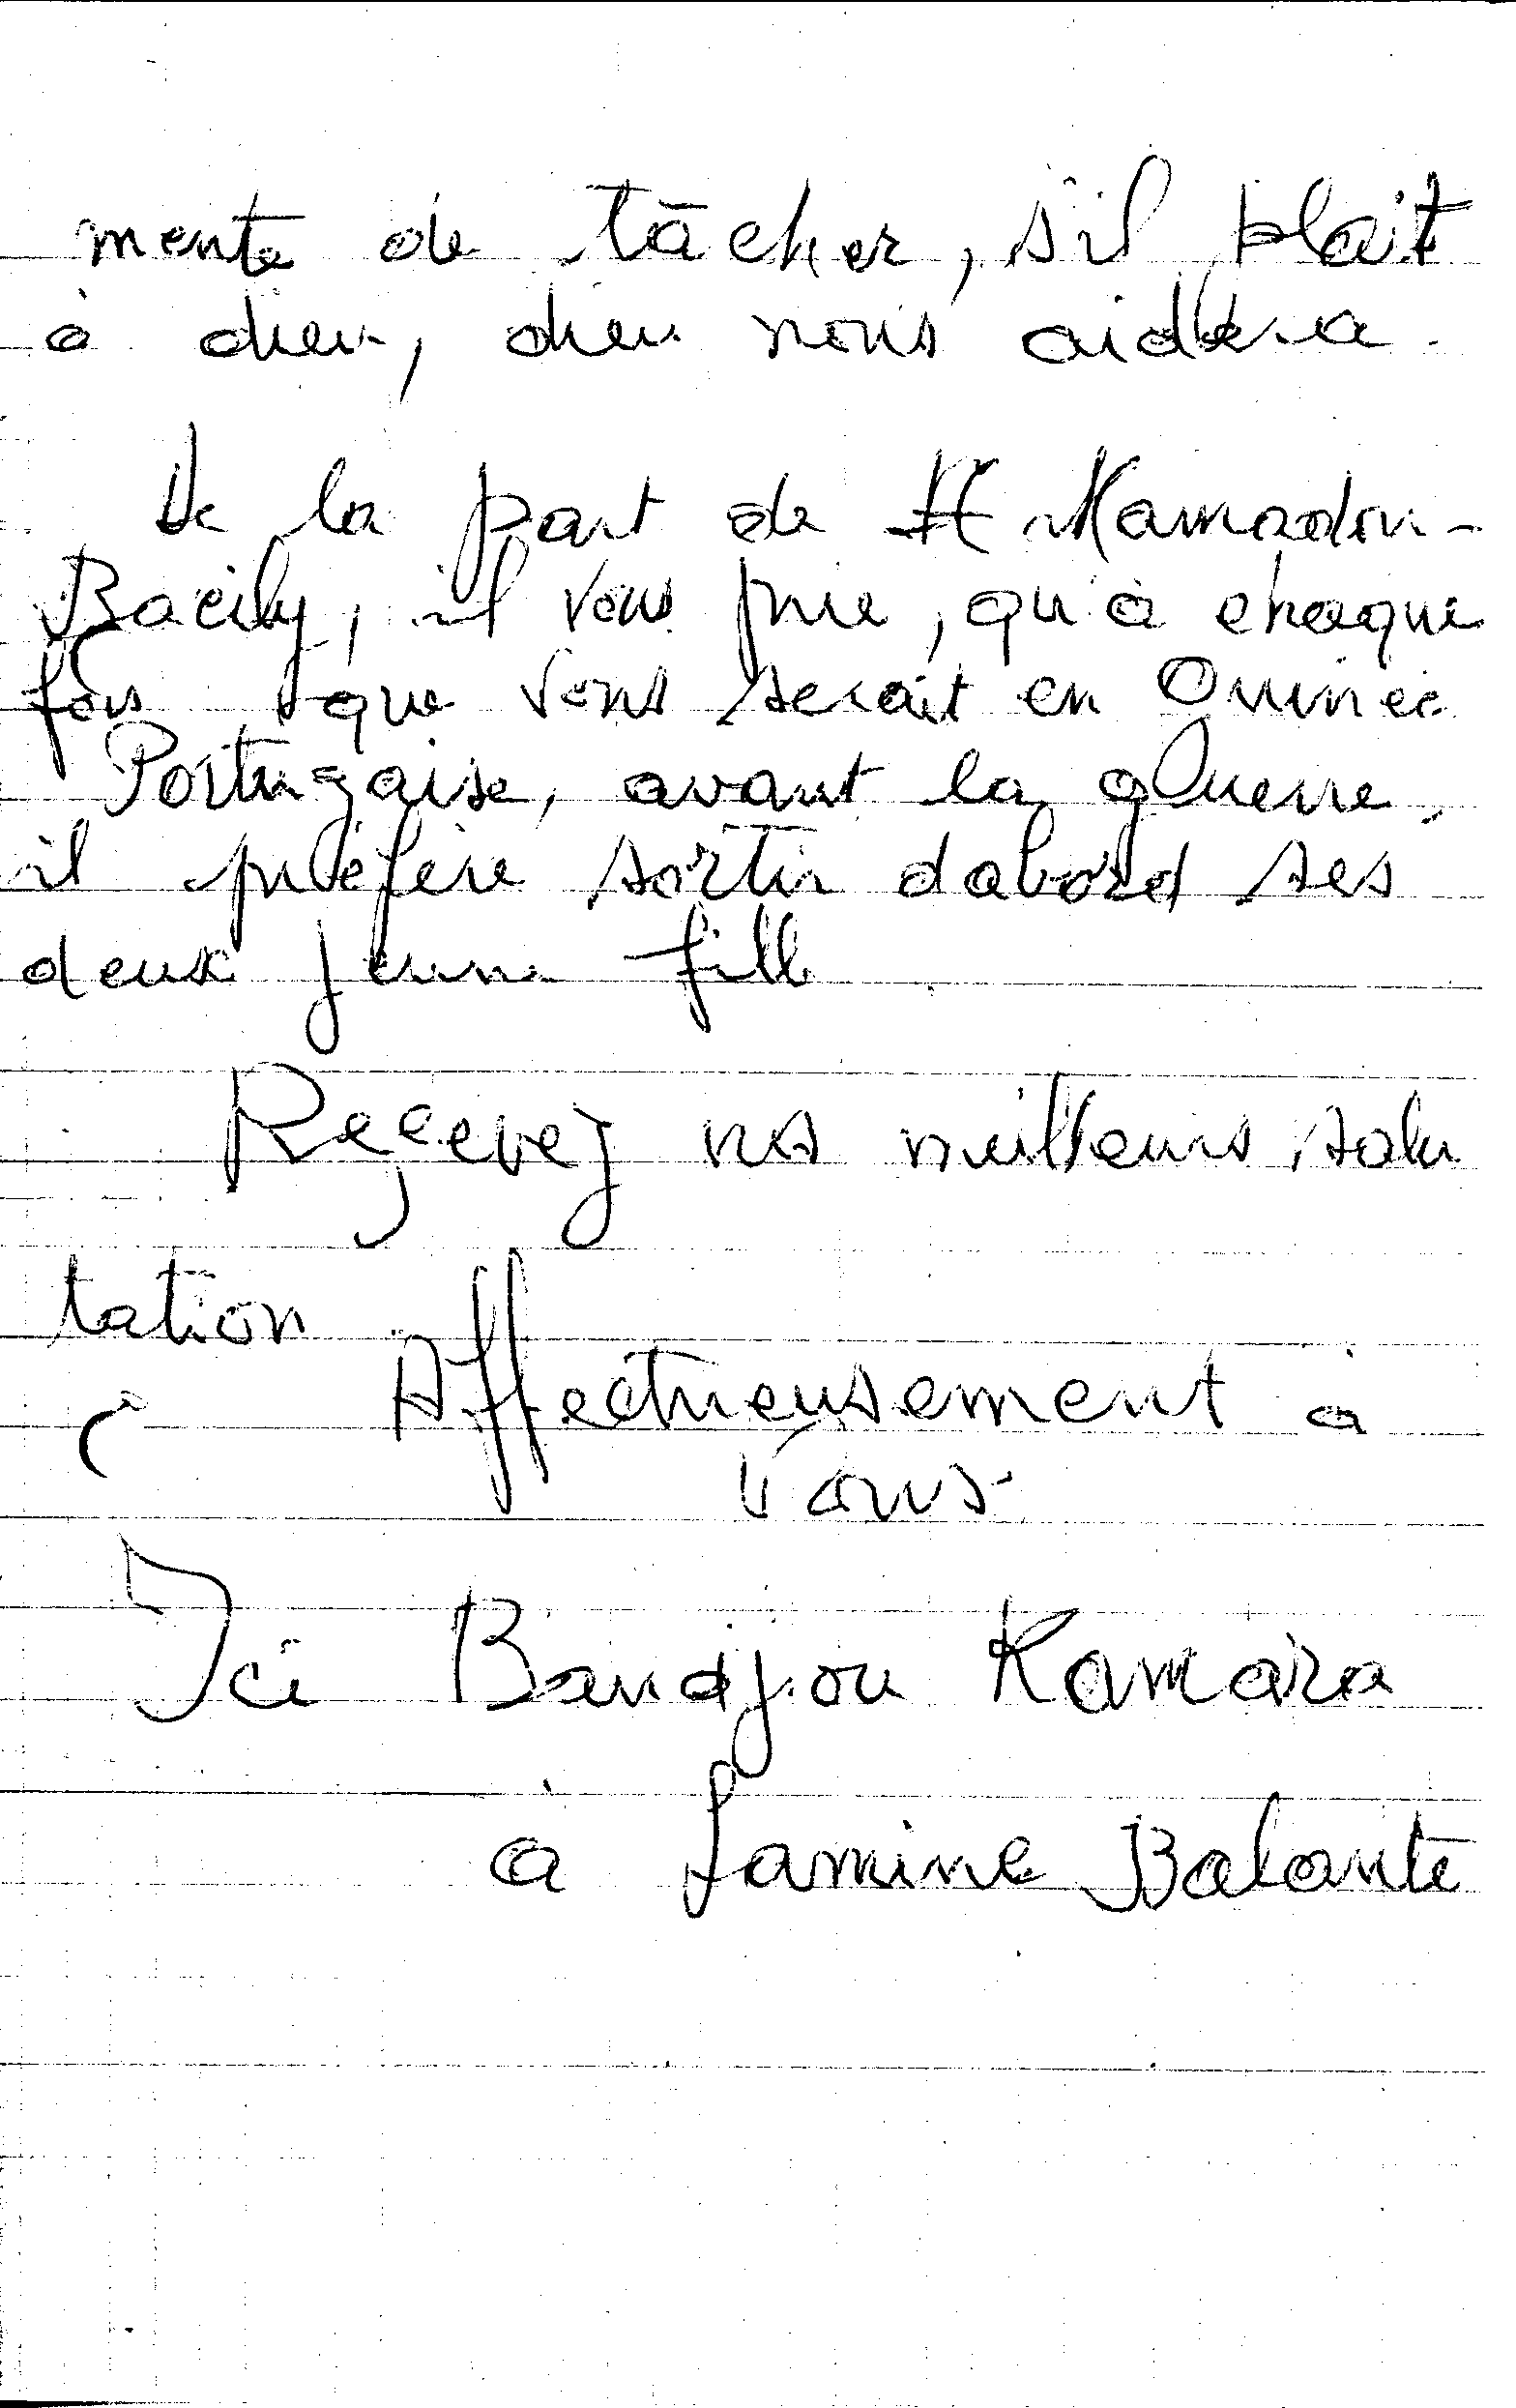 mente de tâcher, s'il plaît
à dieu, dieu nous aidera.
De la part de Mamadou-
Bacily, il vous prie, qu'à chaque
fois que vous serait en Guinée
Portugaise, avant la guerre,
il préfère sortir dabord ses
deux jeune fille
Reçevez nos meilleurs salu
tation
Affectueusement à
Vous
Ici Bandjou Kamara
à Lamine Balante